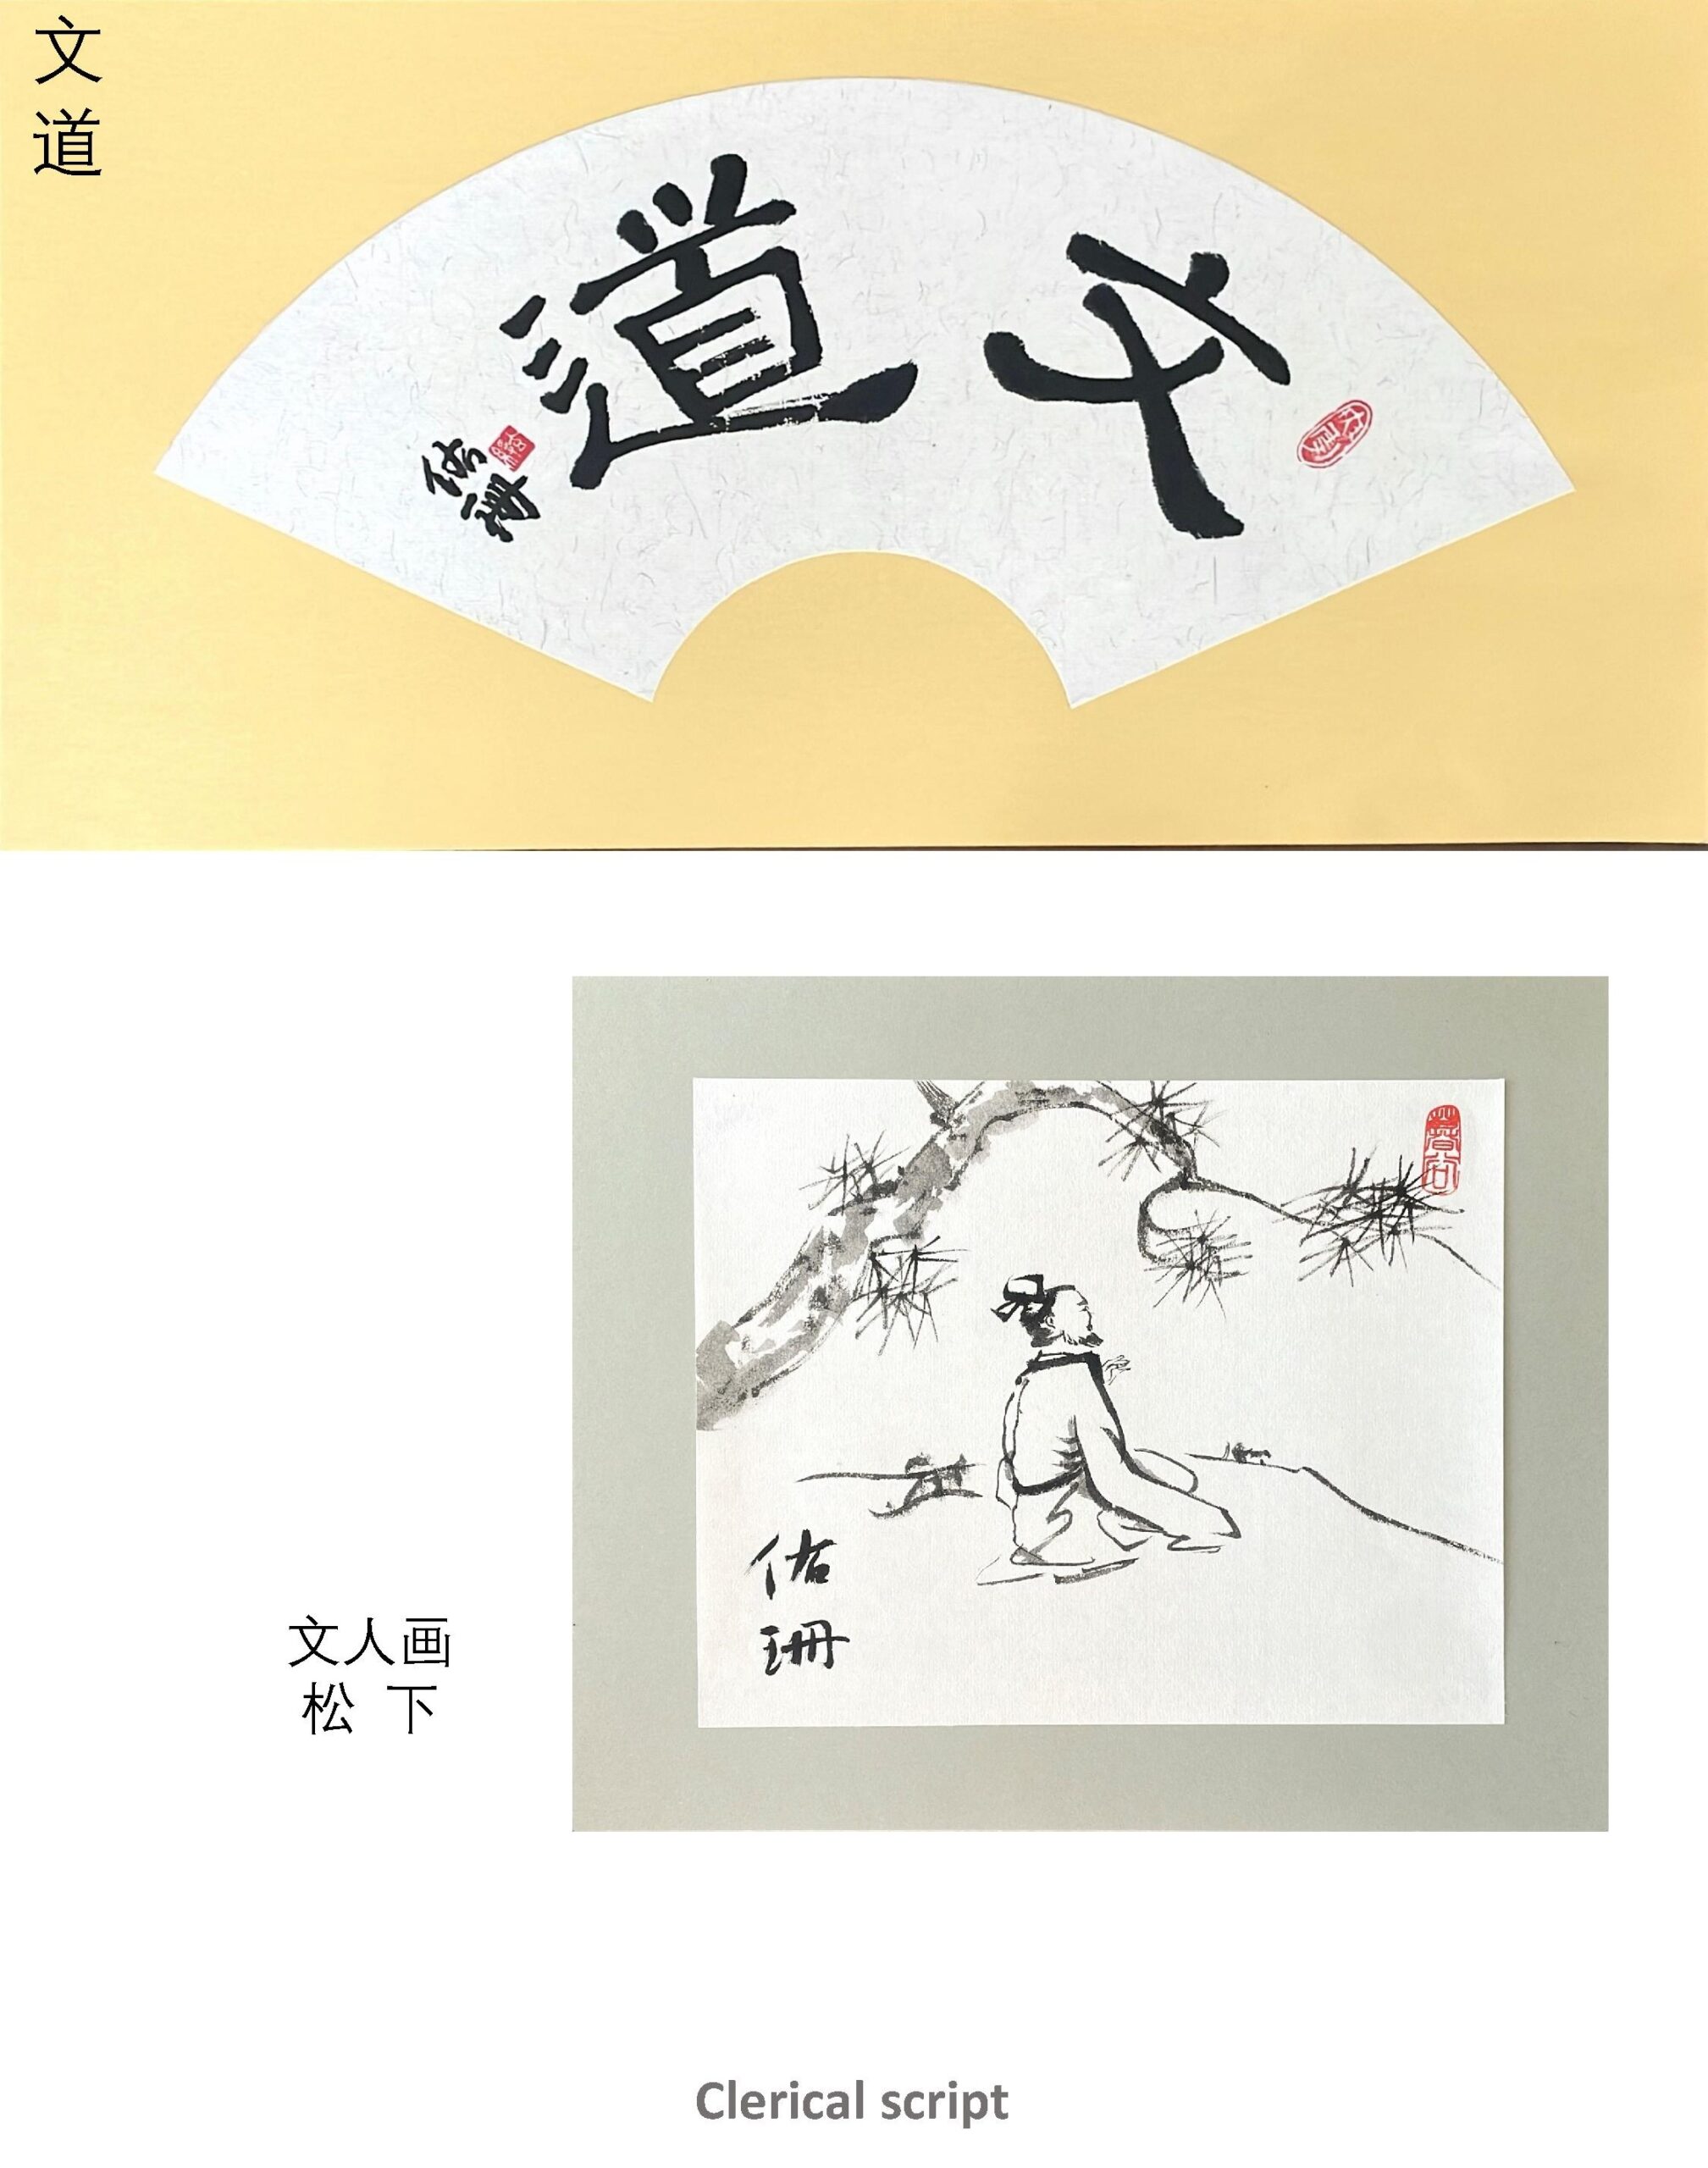 文
道
文道
佑珊
佑
珊
文人画
松 下
Clerical script